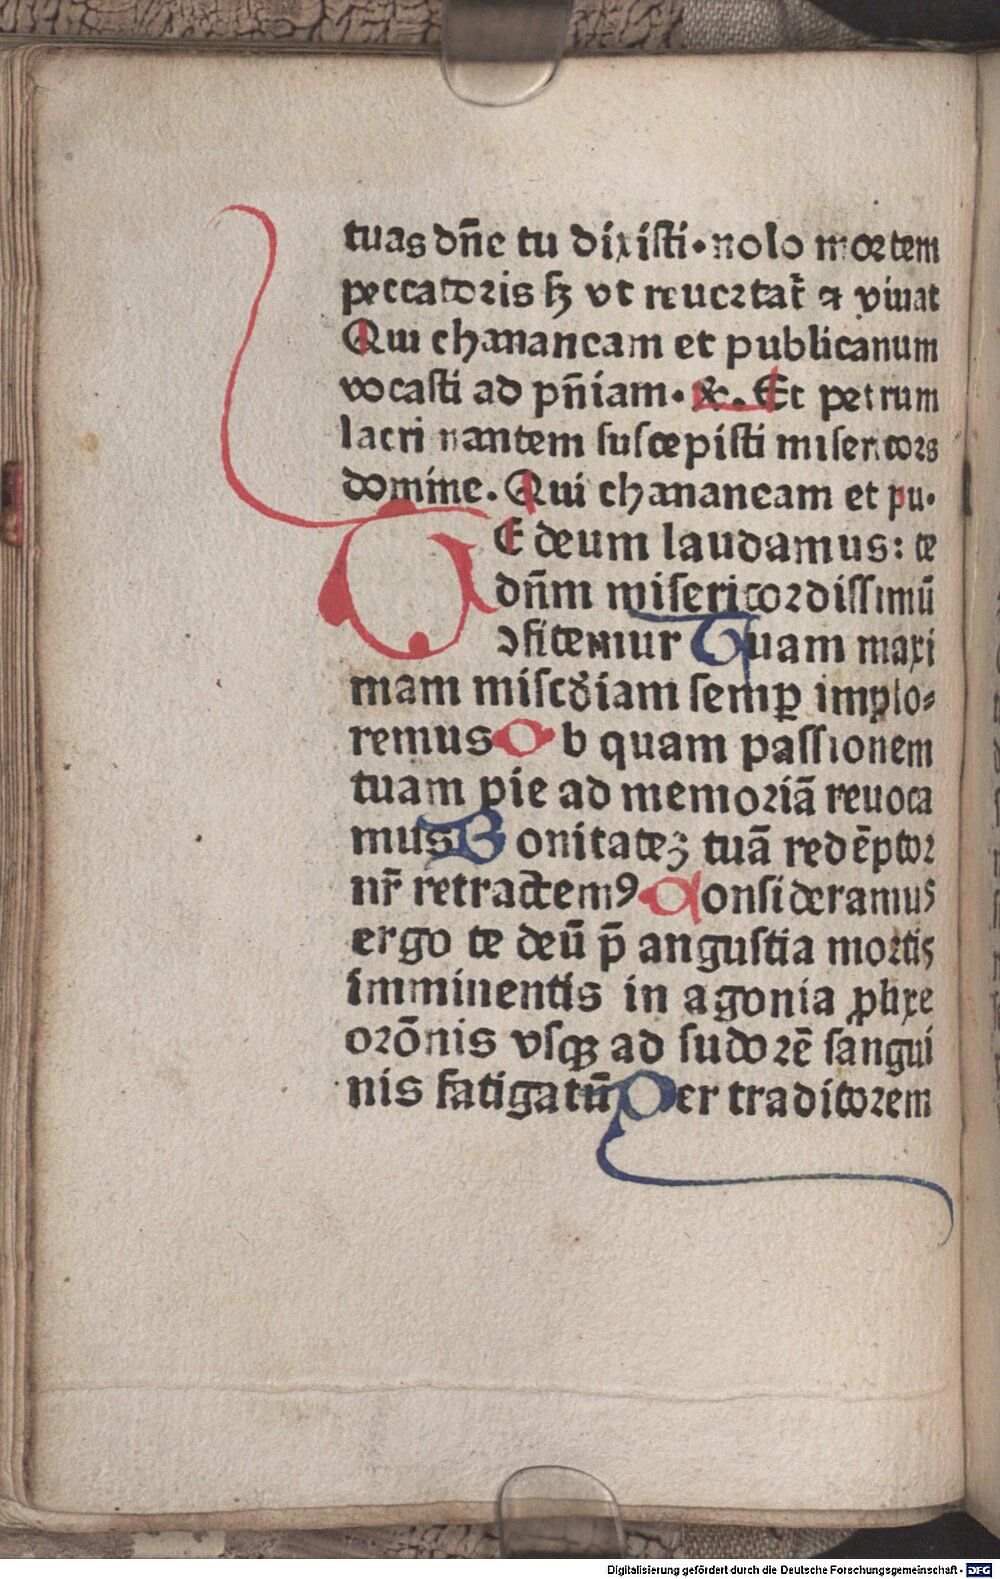 tuas dn̄e tu dixisti·nolo mortem
peccatoris sꝫ vt reuertat᷑ ⁊ viuat
Qui chananeam et publicanum
vocasti ad pn̄iam·&. Et petrum
lacrimantem suscepisti misericors
domine. Qui chananeam et pu·
TE deum laudamus: te
dn̄m misericordissimū
ↄfitemur Quam maxi
mam misc̄diam semꝑ implo⸗
remus Ob quam passionem
tuam pie ad memoriā reuoca
mus Bonitateꝫ tuā redēptor
nr̄ retractemꝯ Consideramus
ergo te deū p̄ angustia mortis
imminentis in agonia ꝓlixe
orōnis vsqꝫ ad sudorē sangui
nis fatigatū Per traditorem
Digitalisierung gefördert durch die Deutsche Forschungsgemeinschaft - DFG